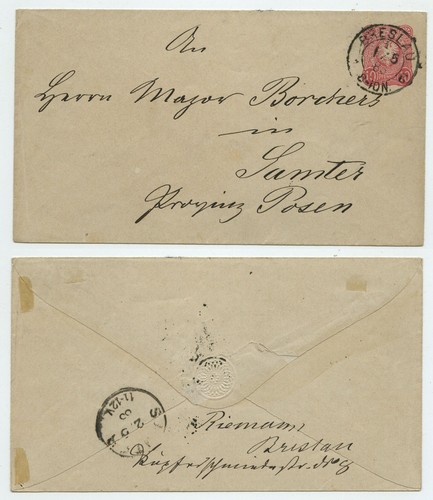 An
Herrn Major Borchers
in
Samter
Provinz Posen
BRESLAU
1 5
Riemann,
Breslau
Kupferschmiedestr. No 8